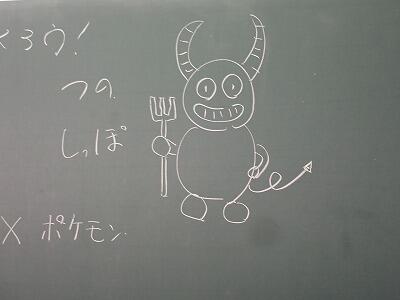 くろう!
つの
しっぽ
× ポケモン